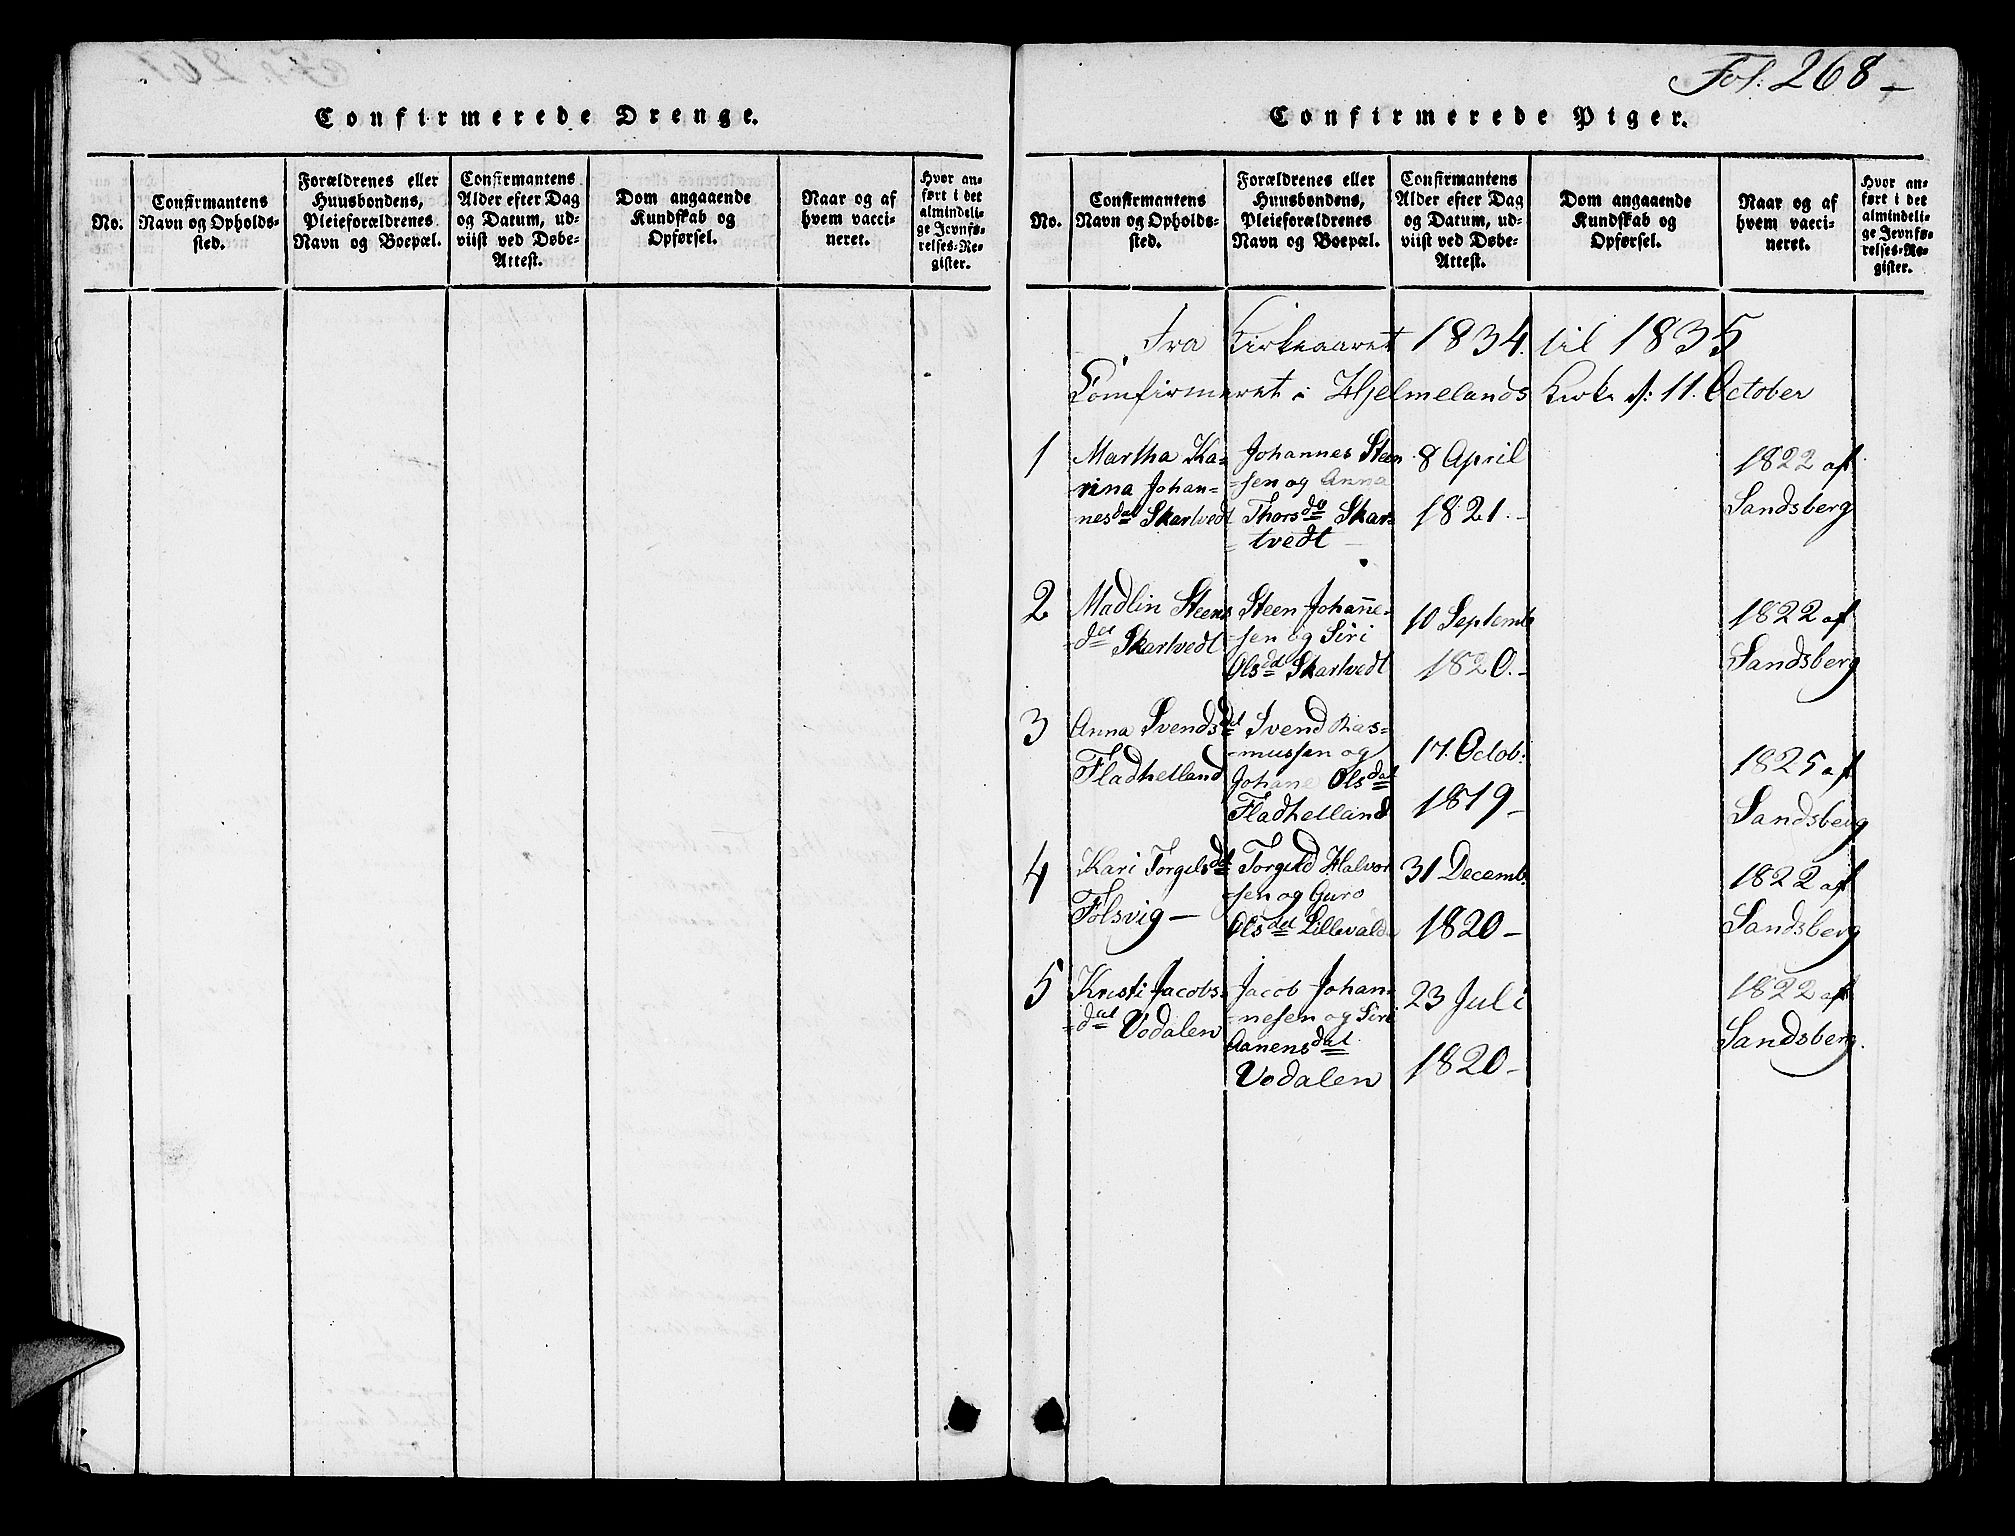 Confirmerede Drenge.
No.
Confirmantens
Navn og Opholds-
sted.
Forældrenes eller
Huusbondens,
Pleieforældrenes
Navn og Boepæl.
Confirmantens
Alder efter Dag
og Datum, ud-
viist ved Døbe-
Attest.
Dom angaaende
Kundskab og
Opførsel.
Naar og af
hvem vacci-
neret.
Hvor an-
ført i det
almindeli-
ge Jevnfø-
relses-Re-
gister.
Fol. 268-
Confirmerede Piger.
No.
Confirmantens
Navn og Opholds-
sted.
Forældrenes eller
Huusbondens,
Pleieforældrenes
Navn og Boepæl.
Confirmantens
Alder efter Dag
og Datum, ud-
viist ved Døbe-
Attest.
Dom angaaende
Kundskab og
Opførsel.
Naar og af
hvem vacci-
neret.
Hvor an-
ført i det
almindeli-
ge Jevnfø-
relses-Re-
gister.
Fra Kirkeaaret 1834. til 1835
Comfirmeret i Hjelmelands Kirke d: 11. October
1
Martha Ka-
rina Johan-
nesdat Skartvedt
Johannes Steen
-sen og Anna
Thorsda Skar-
-tvedt
8 April
1821.-
1822 af
Sandsberg
2
Madlin Steens
-dat Skartvedt
Steen Johanne-
-sen og Siri
Olsdat Skartvedt
10 Septemb
1820.-
1822 af
Sandsberg
3
Anna Svendsdat
Fladhelland
Svend Ras-
-mussen og
Johane Olsdat
Fladhelland
17. Octob:
1819-
1825 af
Sandsberg
4
Kari Torgilsdat
Følsvig-
Torgild Halvor
-sen og Guro
Olsdat Lillevald
31 Decemb.
1820-
1822 af
Sandsberg
5
Kristi Jacobs-
-dat Vodalen
Jacob Johan-
-nesen og Siri
Aanensdat
Vodalen
23 Juli
1820-
1822 af
Sandsberg.